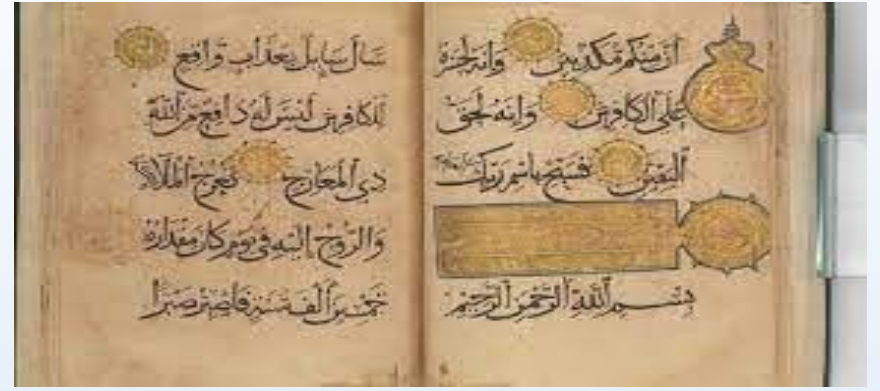 أن منكم مكذبين وإنه لحسرة
على الكافرين وإنه لحق
اليقين فسبح باسم ربك
بسم الله الرحمن الرحيم
سأل سايل بعذاب واقع
للكافرين ليس له دافع من الله
ذي المعارج تعرج الملائكة
والروح إليه في يوم كان مقداره
خمسين ألف سنة فاصبر صبرا